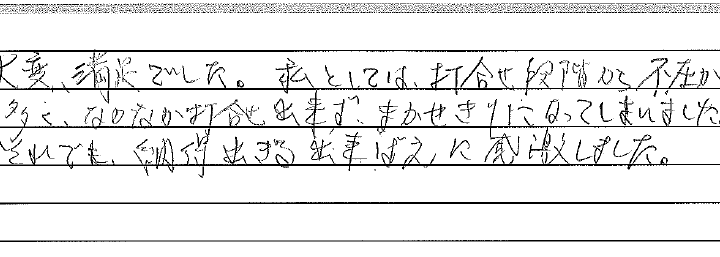 大変、満足でした。私としては、打合せ段階から不在が
多く、なかなか打合せ出来ず、まかせきりになってしまいました
それでも、納得出きる出来ばえに感激しました。